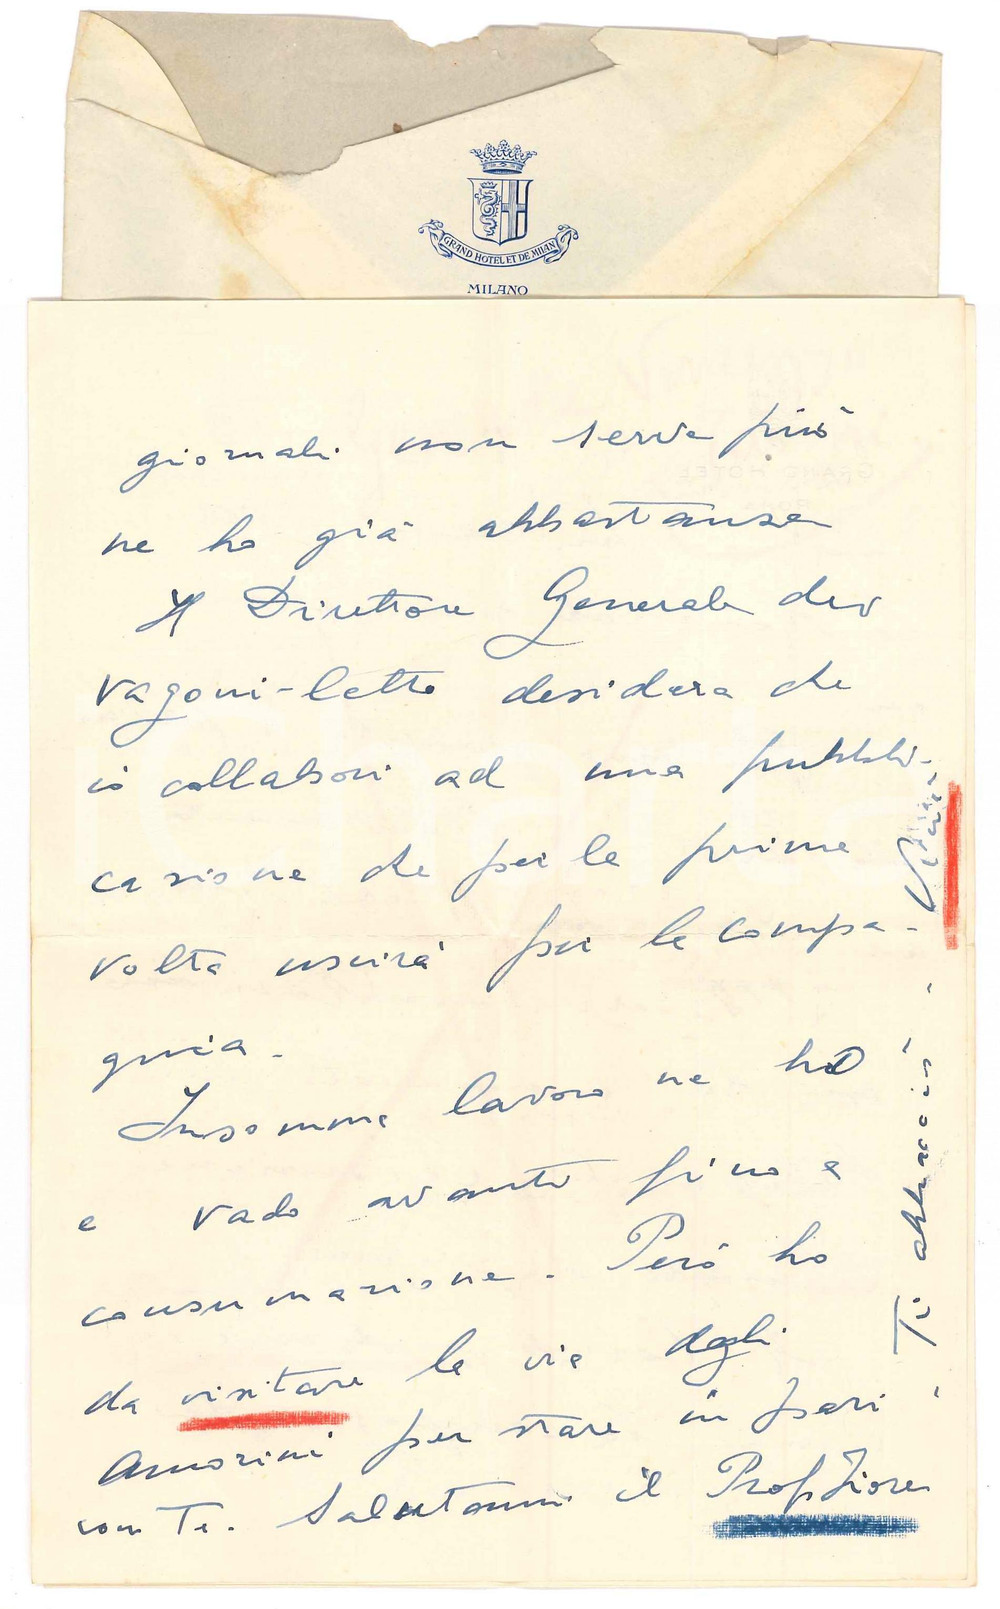 GRAND HOTEL ET DE MILAN
MILANO
giornali non serve più
ne ho già abbastanza
Il Direttore Generale dei
vagoni-letto desidera che
io collabori ad una pubbli-
cazione che per la prima
volta uscirà per la compa-
gnia.
Insomma lavoro ne ho
e vado avanti fino a
consumazione. Però ho
da visitare la via degli
Amorini per stare in pari
con Te. Salutami il Prof Fiore
Ti abbraccio